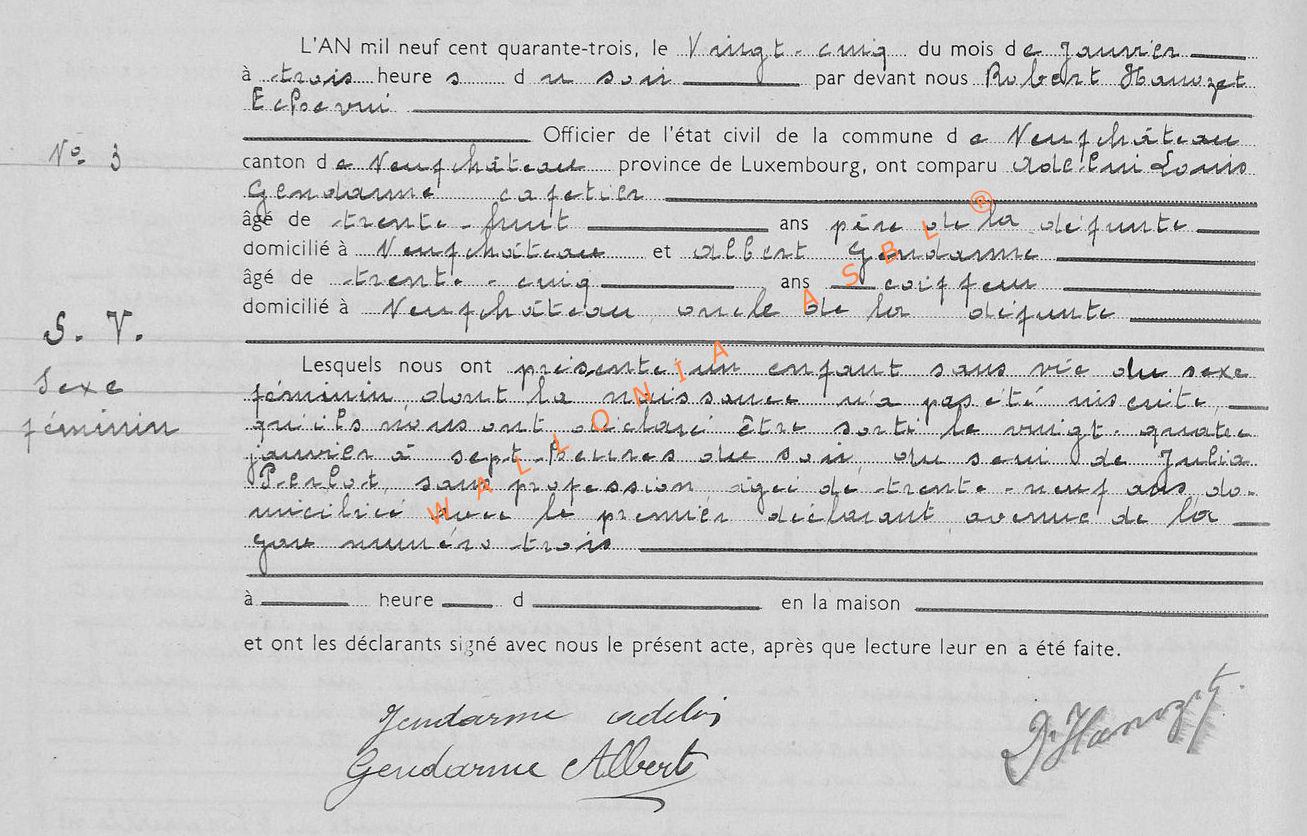 L'AN mil neuf cent quarante-trois, le Vingt-cinq du mois de Janvier
à trois heure s du soir par devant nous Robert Hanozet
Echevin
Officier de l'état civil de la commune de Neufchâteau
N° 3
canton de Neufchâteau province de Luxembourg, ont comparu Adelin Louis
Gendarme cafetier
âgé de trente-huit ans père de la défunte
domicilié à Neufchâteau et Albert Gendarme
âgé de trente-cinq ans coiffeur
domicilié à Neufchâteau, oncle de la défunte
S. V.
Sexe
féminin
Lesquels nous ont présenté un enfant sans vie du sexe
féminin dont la naissance n'a pas été inscrite,
qu'ils nous ont déclaré être sorti le vingt-quatre
janvier à sept heures du soir, du sein de Julia
Perlot, sans profession, âgée de trente-neuf ans, do-
miciliée avec le premier déclarant avenue de la
gare numéro trois
à heure d en la maison
et ont les déclarants signé avec nous le présent acte, après que lecture leur en a été faite.
Gendarme Adelin
Gendarme Albert
Dr Hanozet
WALLONIA ASBL ®